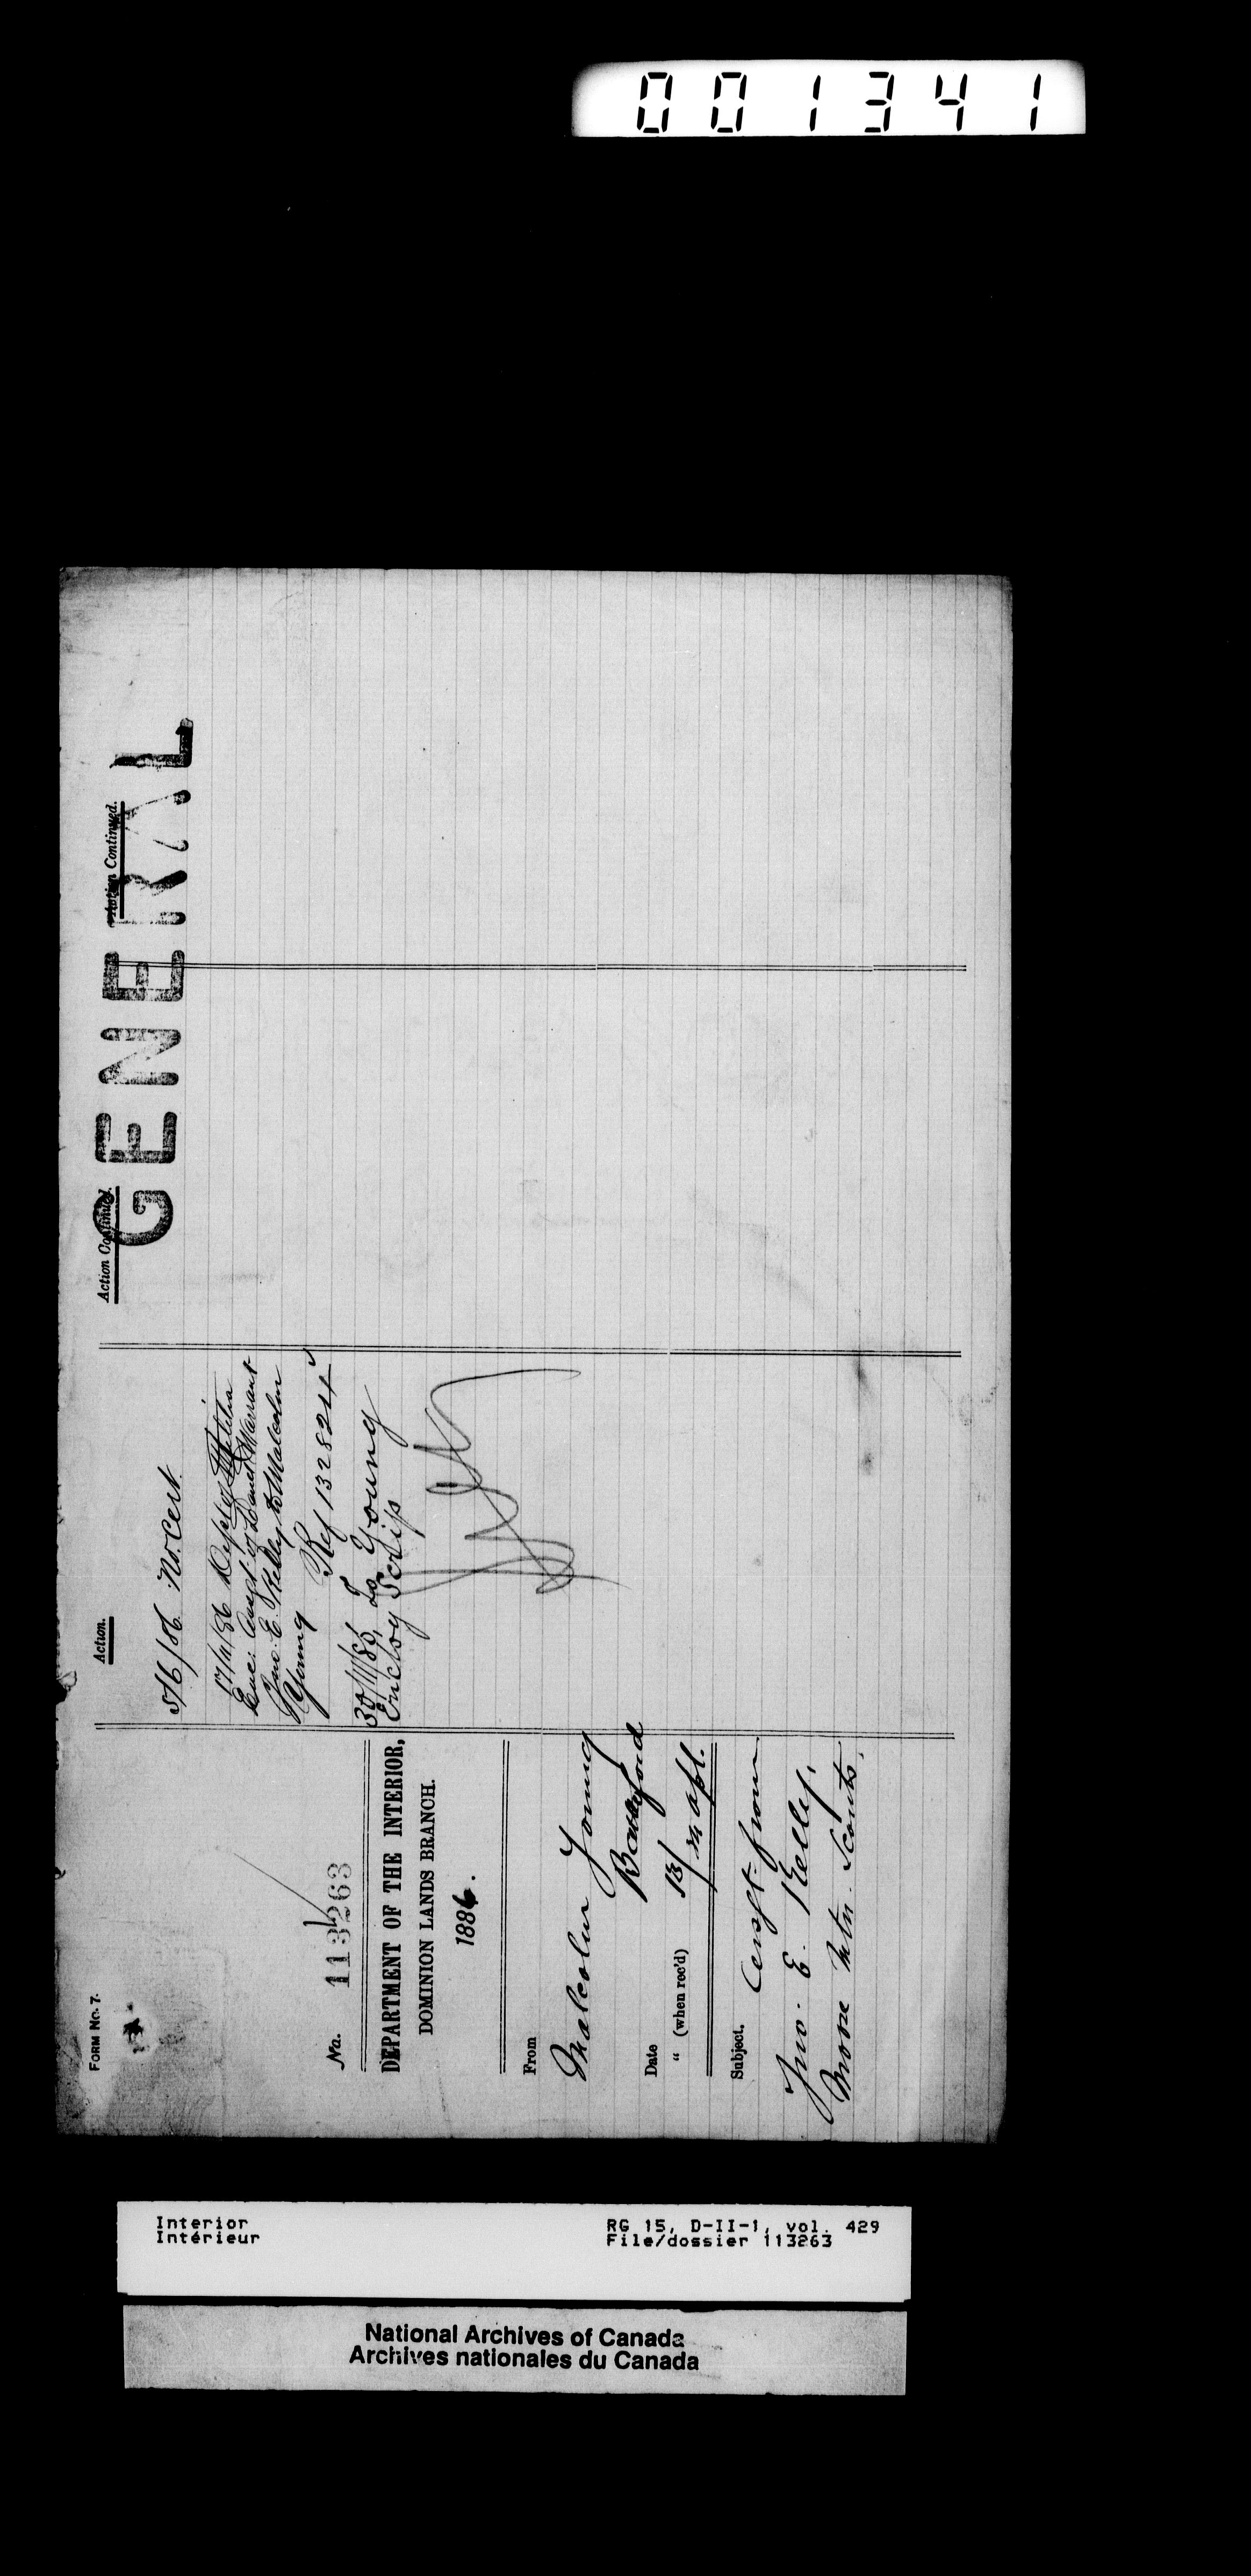 001341
FORM No. 7.
No. 113263
DEPARTMENT OF THE INTERIOR,
DOMINION LANDS BRANCH.
1886.
From
Malcolm Young
Battleford
Date 13/
" (when rec'd) apl.
Subject. Assgt from
Jno. E. Kelly,
Moose Mtn. Scouts,
Action.
5/6/86 No. Cert
17/11/86 Dept of Militia
Enc. Assgt of Land Warrant
Jno. E. Kelly to Malcolm
Young Ref 132824
30/11/86, To Young
Enclosg Scrip
Action Continued.
Action Continued.
GENERAL
Interior
Intérieur
RG 15, D-II-1, vol. 429
File/dossier 113263
National Archives of Canada
Archives nationales du Canada